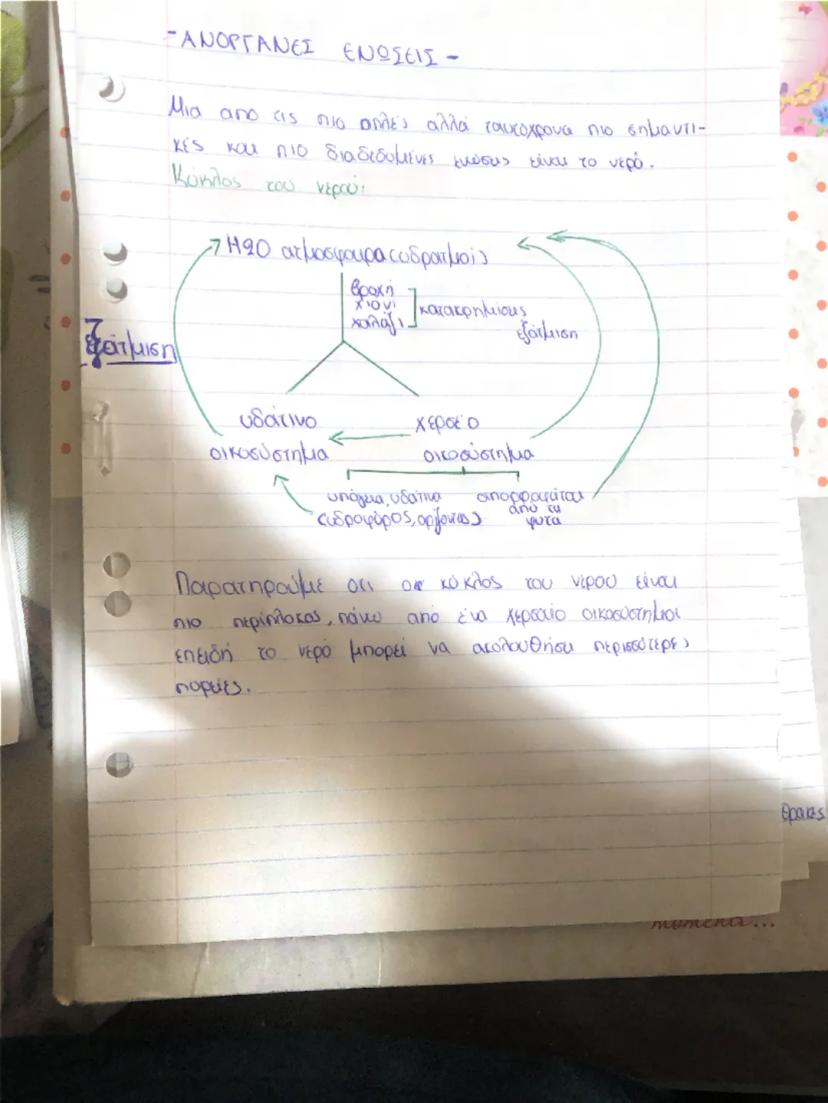 -ΑΝΟΡΓΑΝΕΣ ΕΝΩΣΕΙΣ-
Μια από τις πιο απλές αλλά ταυτόχρονα πιο σημαντι-
κές και πιο διαδεδομένες ενώσεις είναι το νερό.
Κύκλος του νερού:
H2O ατμόσφαιρα (υδρατμοί)
βροχή
χιόνι
χαλάζι
κατακρημνίσεις
εξάτμιση
Εξάτμιση
υδάτινο χερσαίο
οικοσύστημα οικοσύστημα
υπόγεια, υδάτινα απορροφάται
από τα
(υδροφόρος, ορίζοντας) φυτά
Παρατηρούμε ότι ο κύκλος του νερού είναι
πιο περίπλοκος, πάνω από ένα χερσαίο οικοσύστημα
επειδή το νερό μπορεί να ακολουθήσει περισσότερες
πορείες.
moment...